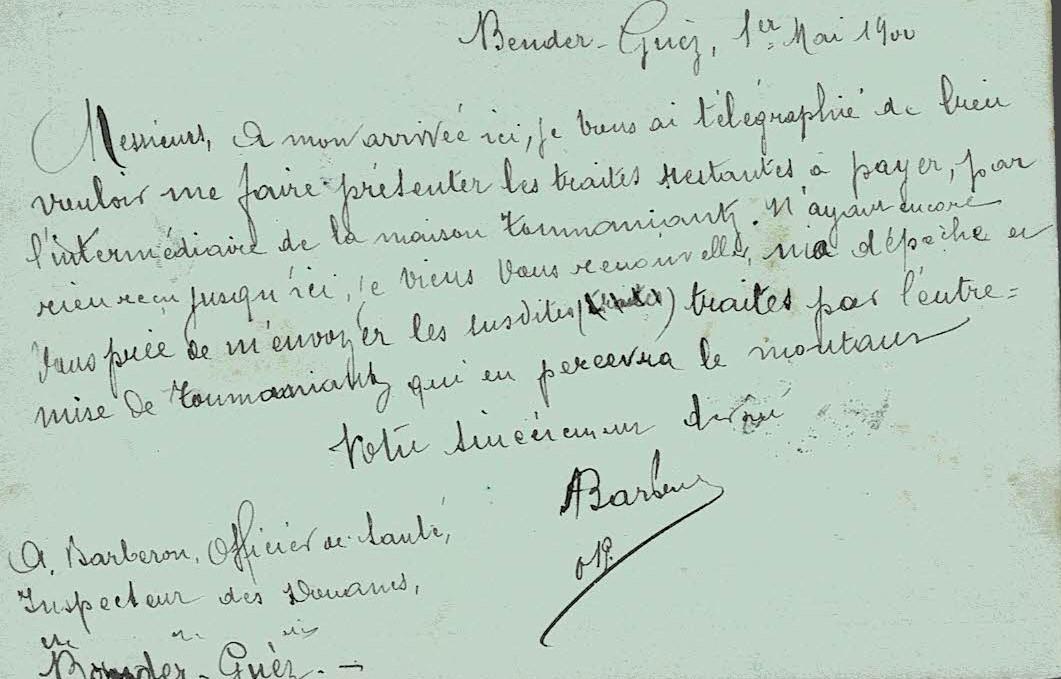 Bender-Guèz, 1er Mai 1900
Messieurs, A mon arrivée ici, je vous ai télégraphié de bien
vouloir me faire présenter les traites restantes à payer, par
l'intermédiaire de la maison Toumaniantz. N'ayant encore
rien reçu jusqu'ici, je viens vous renouveller, ma dépêche et
vous prier de m'envoyer les susdites ( ) traites par l'entre=
mise de Toumaniantz qui en percevra le montant
Votre sincèrement dévoué
ABarberon
A. Barberon, Officier de Santé,
Inspecteur des Douanes,
Bender-Guèz. —